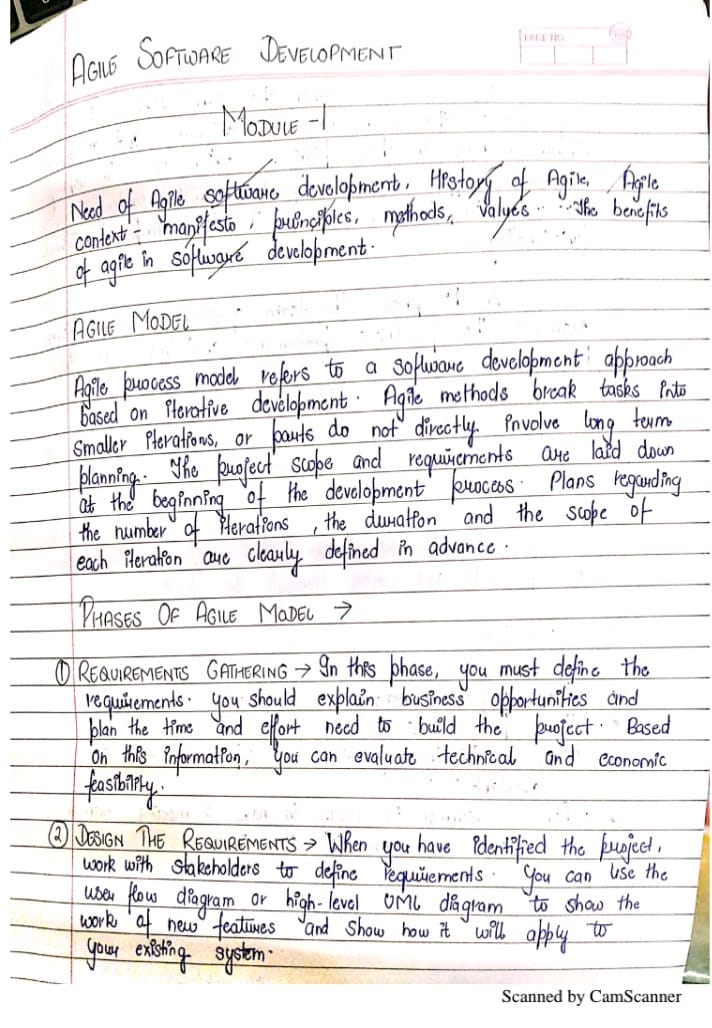 PAGE NO.
AGILE SOFTWARE DEVELOPMENT
MODULE -1
Need of Agile software development, History of Agile, Agile
context - manifesto, principles, methods, values. The benefits
of agile in software development.
AGILE MODEL
Agile process model refers to a software development approach
based on iterative development. Agile methods break tasks into
smaller iterations, or parts do not directly involve long term
planning. The project scope and requirements are laid down
at the beginning of the development process. Plans regarding
the number of iterations, the duration and the scope of
each iteration are clearly defined in advance.
PHASES OF AGILE MODEL →
① REQUIREMENTS GATHERING → In this phase, you must define the
requirements. You should explain business opportunities and
plan the time and effort need to build the project. Based
on this information, you can evaluate technical and economic
feasibility.
② DESIGN THE REQUIREMENTS → When you have identified the project,
work with stakeholders to define requirements. You can use the
user flow diagram or high-level UML diagram to show the
work of new features and show how it will apply to
your existing system.
Scanned by CamScanner